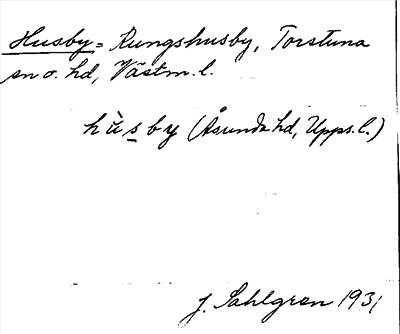 Husby = Kungshusby, Torstuna
sn o. hd, Västm. l.
hùsby (Åsunda hd, Upps. l.)
J. Sahlgren 1931